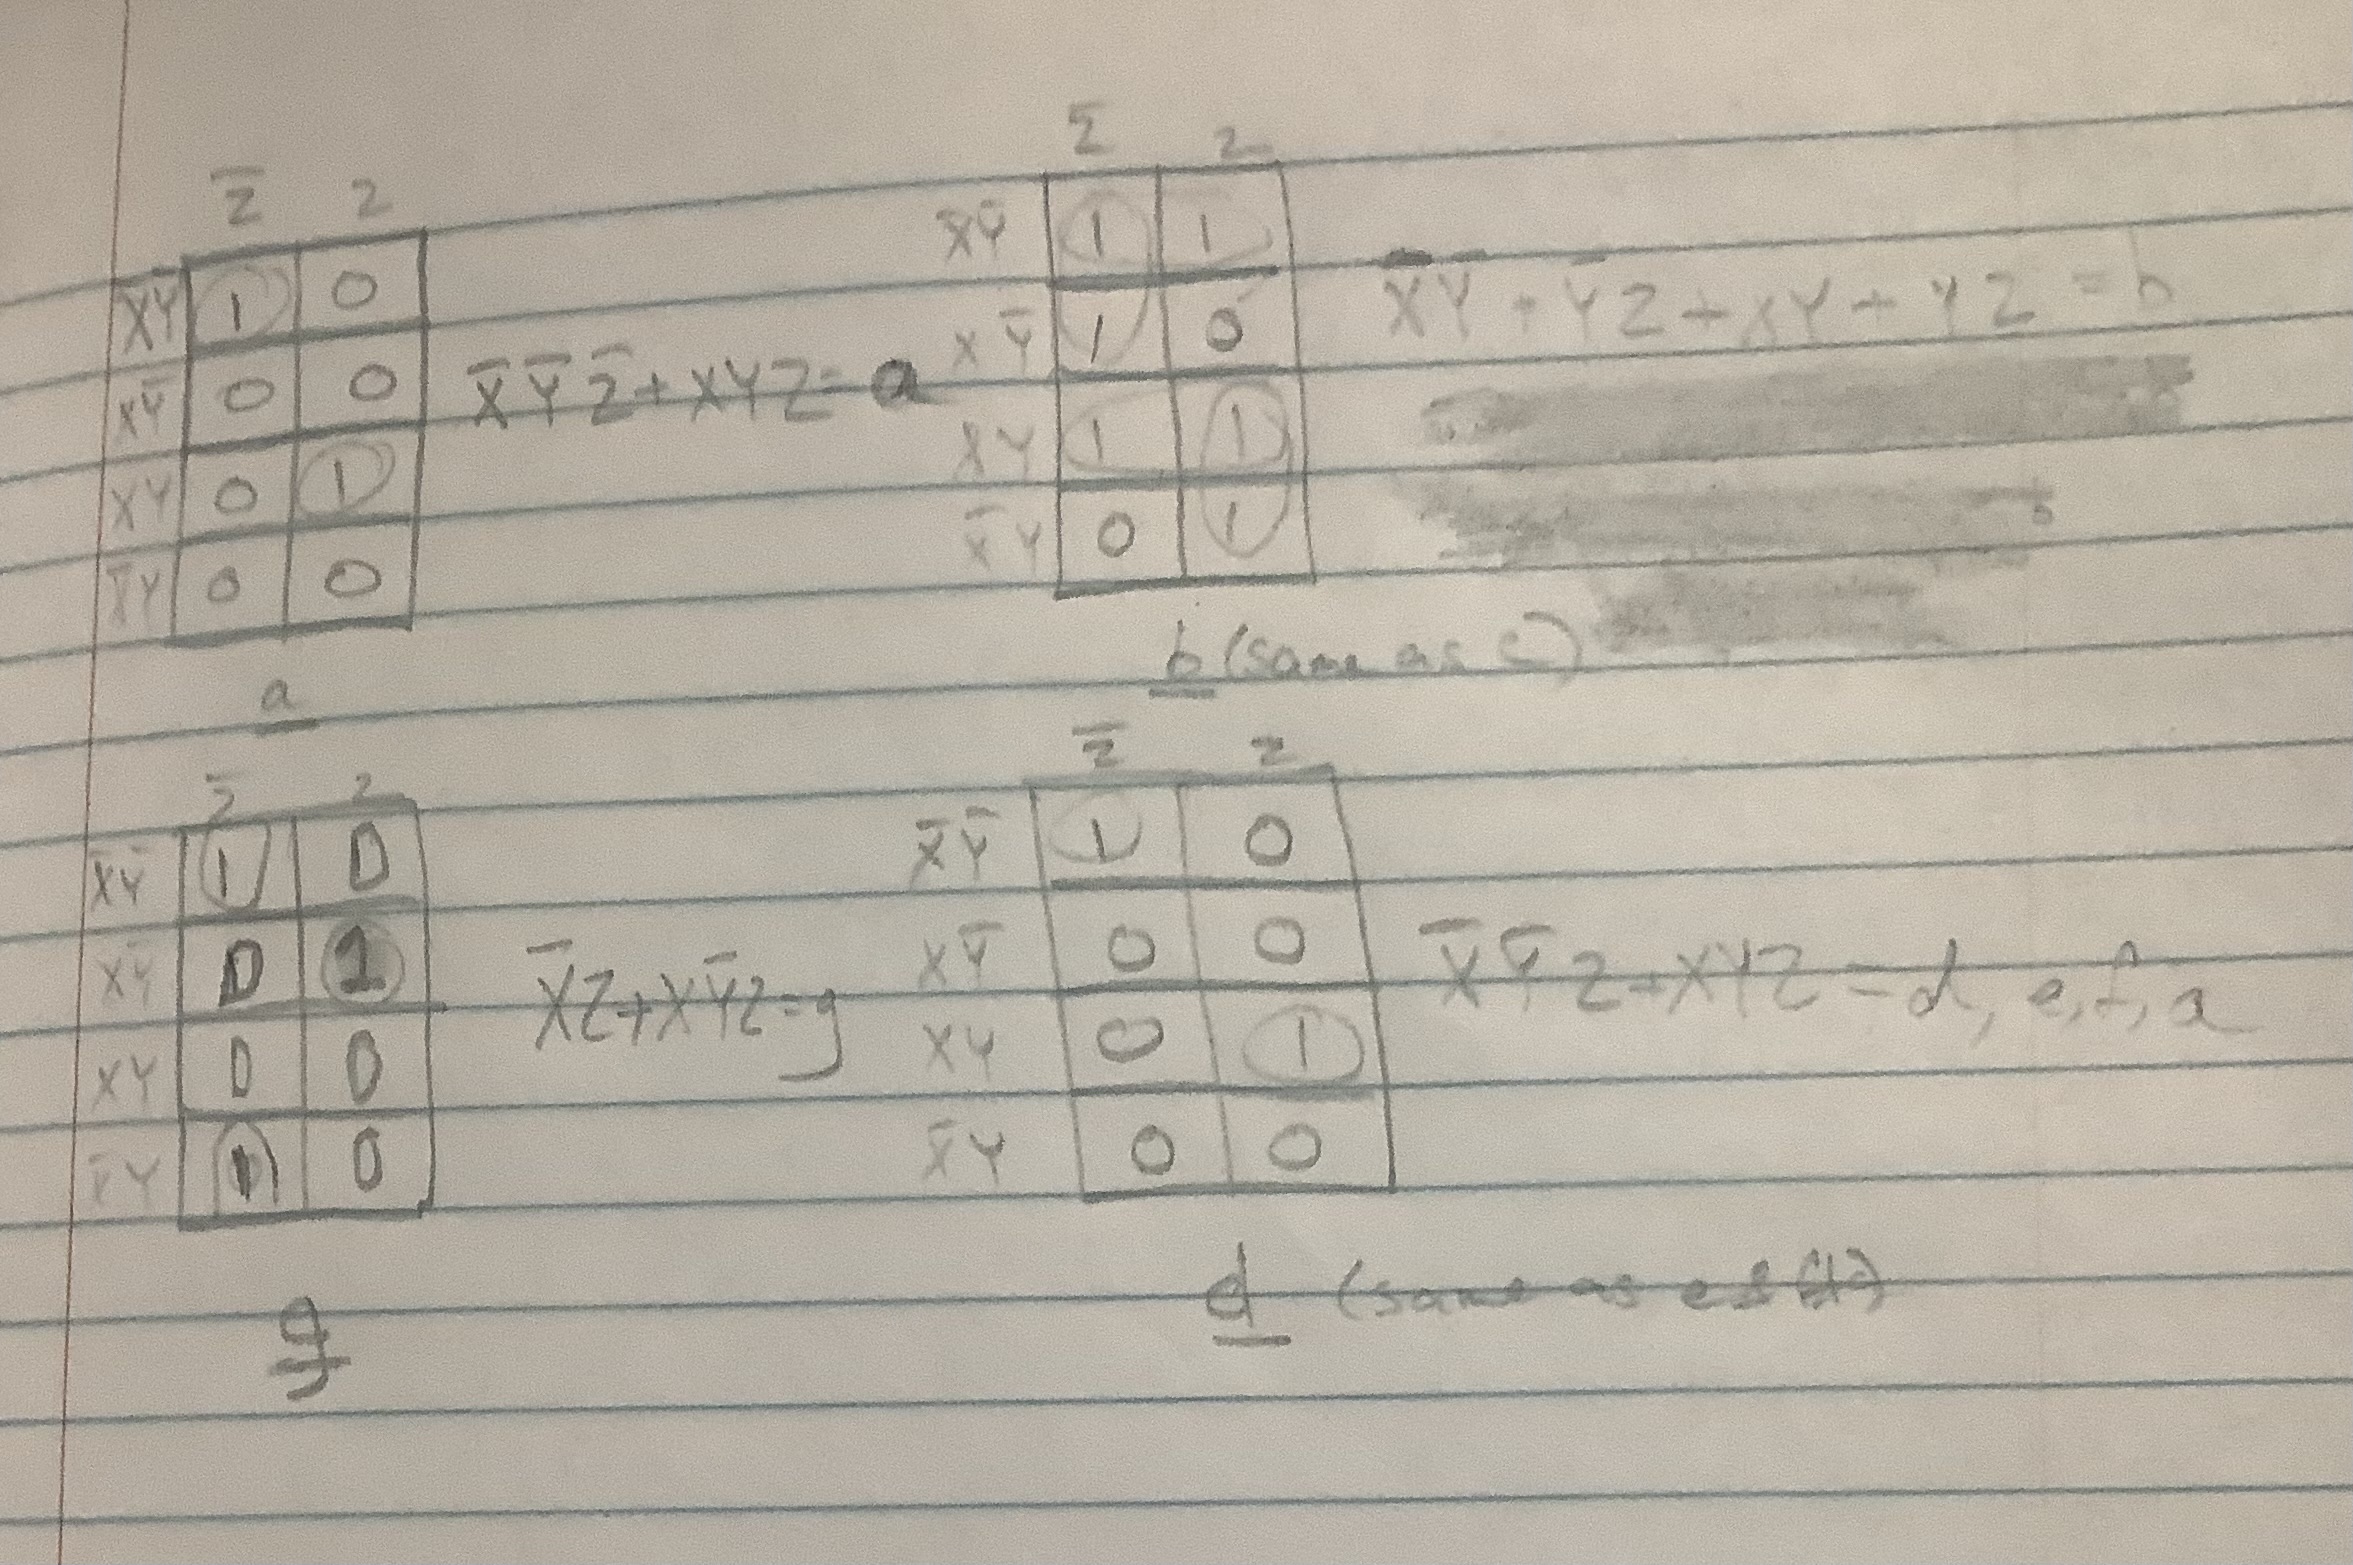 Z̅ Z
X̅Y̅ 1 0
XY̅ 0 0
XY 0 1
X̅Y 0 0
X̅Y̅Z̅+XYZ=a
a
Z̅ Z
X̅Y̅ 1 1
XY̅ 1 0
XY 1 1
X̅Y 0 1
X̅Y̅+Y̅Z+XY+YZ=b
b (same as c)
Z̅ Z
X̅Y̅ 1 0
XY̅ 0 1
XY 0 0
X̅Y 1 0
X̅Z+XY̅Z=g
g
Z̅ Z
X̅Y̅ 1 0
XY̅ 0 0
XY 0 1
X̅Y 0 0
X̅Y̅Z+XYZ=d, e, f, a
d (same as e &